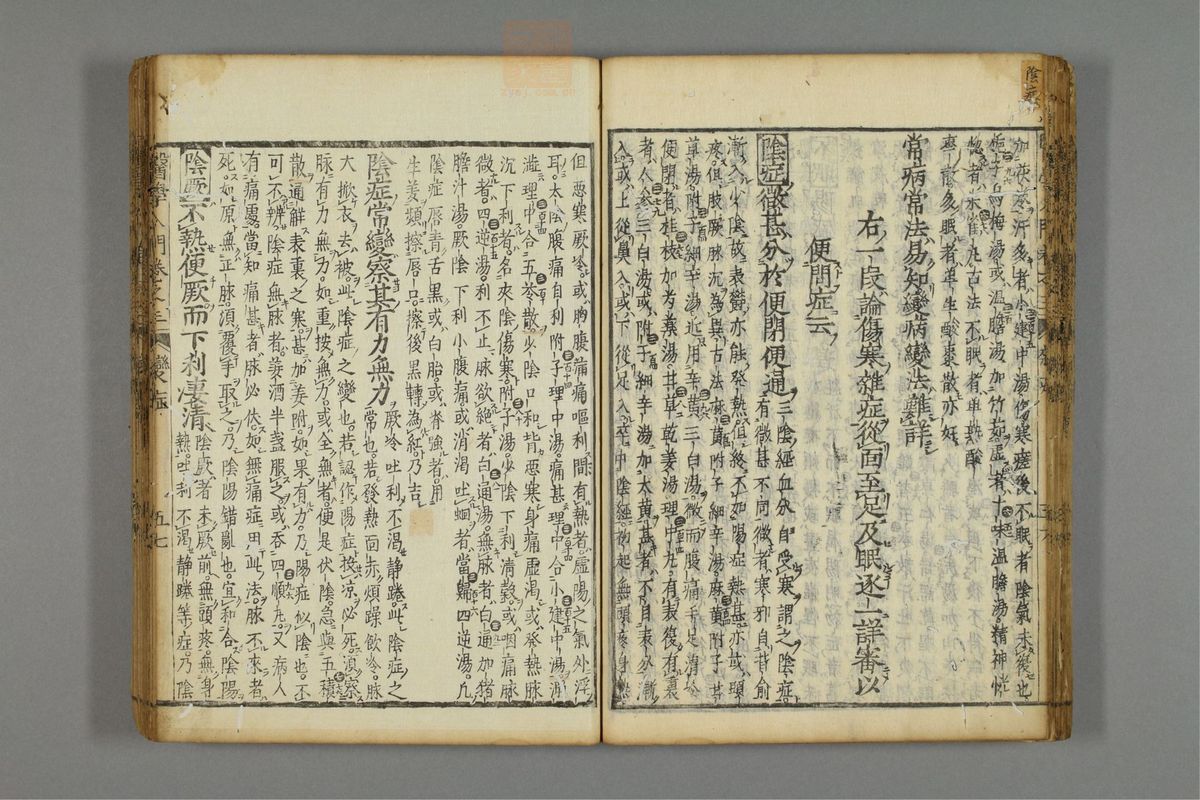 陰症
加茯苓汗多者小建中湯傷寒瘥後不眠者陰氣未復也
梔子烏梅湯或溫膽湯加竹茹虛者十味溫膽湯精神恍
惚者朱雀丸古法不眠者單棗酸
棗散多眠者單生酸棗散亦好
常病常法易知變病變法難詳
右一段論傷寒雜症從面至足及眠逐一詳審以
便問症云
陰症微甚分於便閉便通三陰經血分自受寒謂之陰症
有微甚不同微者寒邪自背俞
漸入少陰故表熱亦能發熱但終不如陽症熱甚亦或頭
疼但肢厥脉沉為異古法麻黃附子細辛湯麻黃附子甘
草湯附子細辛湯近用辛黃三白湯微而腹痛手足清冷
便閉者桂枝加芍藥湯甘草乾姜湯理中丸有表復有裏
者人參三白湯或附子細辛湯加大黃甚者不自表分漸
入或上從鼻入或下從足入卒中陰經初起無頭疼身熱
但惡寒厥冷或胸腹痛嘔利間有熱者虛陽之氣外浮
耳太陰腹痛自利附子理中湯痛甚理中合小建中湯溏
澁理中合五苓散少陰口和背惡寒身痛虛渴或發熱脉
沉下利者名夾陰傷寒附子湯少陰下利清穀或咽痛脉
微者四逆湯利不止脉欲絕者白通湯無脉者白通加猪
膽汁湯厥陰下利小腹痛或消渴吐蛔者當歸四逆湯凡
陰症唇青舌黑或白胎或脊強者用
生姜頻擦唇口擦後黑轉為紅乃吉
陰症常變察其有力無力厥冷吐利不渴靜踡此陰症之
常也若發熱面赤煩躁飲冷脉
大揿衣去被此陰症之變也若認作陽症投凉必死須察
脉有力無力如重按無力或全無者便是伏陰急與五積
散通解表裏之寒甚加姜附如果有力乃陽症似陰也不
可不辨陰症無脉者姜酒半盞服之或吞四順丸又病人
有痛處當知痛甚者脉必伏如無痛症用此法脉不來者
死如原無正脉須覆手取之乃陰陽錯亂也宜和合陰陽
陰厥不熱便厥而下利凄清陰厥者未厥前無頭疼無身
熱吐利不渴靜踡等症乃陰
醫學入門卷之三
變症
五七